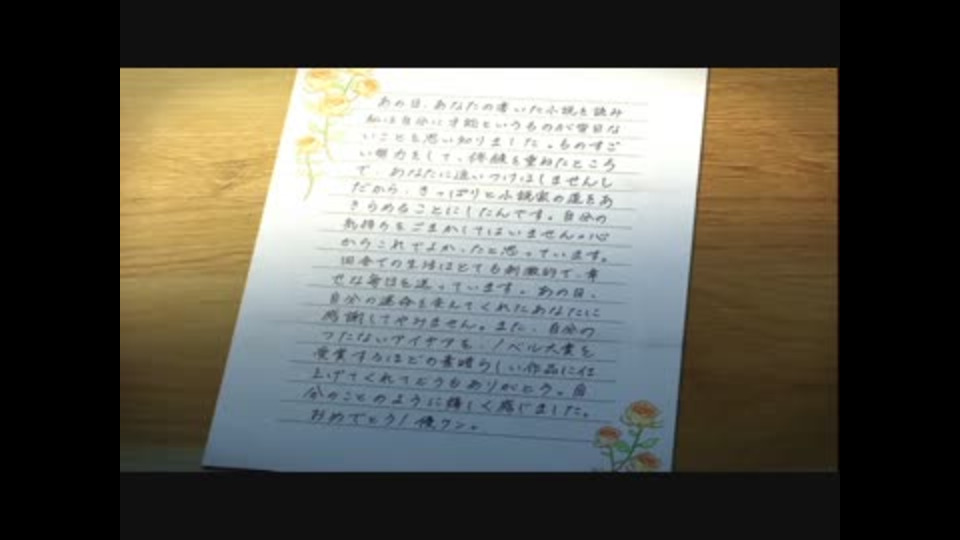 あの日、あなたの書いた小説を読み
私は自分に才能というものが皆目な
いことを思い知りました。ものすご
い努力をして、修練を重ねたところ
で、あなたに追いつけはしませんし
だから、きっぱりと小説家の道をあ
きらめることにしたんです。自分の
気持ちをごまかしてはいません。心
からこれでよかったと思っています。
田舎での生活はとても刺激的で、幸
せな毎日を送っています。あの日、
自分の運命を変えてくれたあなたに
感謝してやみません。また、自分の
つたないアイデアを、ノベル大賞を
受賞するほどの素晴らしい作品に仕
上げてくれてどうもありがとう。自
分のことのように嬉しく感じました。
おめでとう！俊クン。